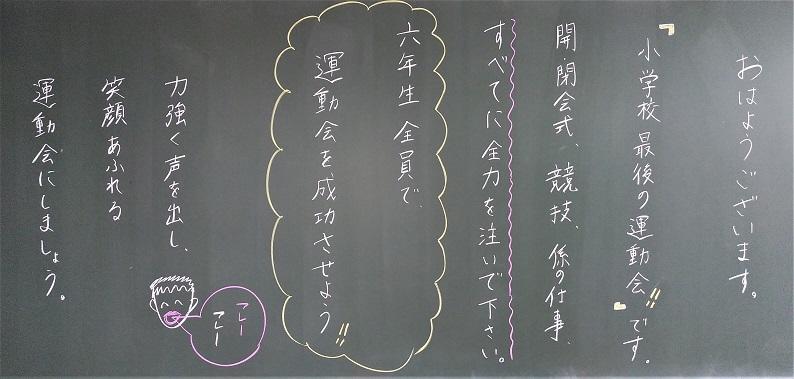 おはようございます。
『小学校最後の運動会!!』です。
開閉会式、競技、係の仕事、
すべてに全力を注いで下さい。
六年生全員で、
運動会を成功させよう!!
力強く声を出し、
笑顔あふれる
運動会にしましょう。
フレー
フレー